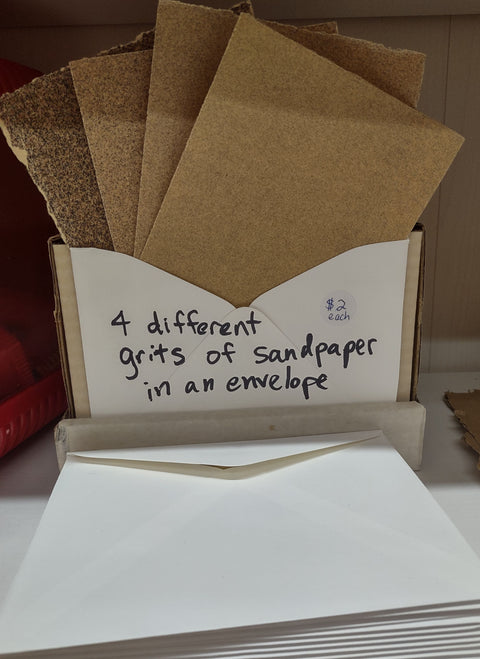 4 different
grits of sandpaper
in an envelope
$2
each